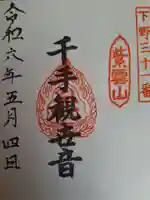 下野三十一番
紫雲山
千手観音
令和六年五月四日